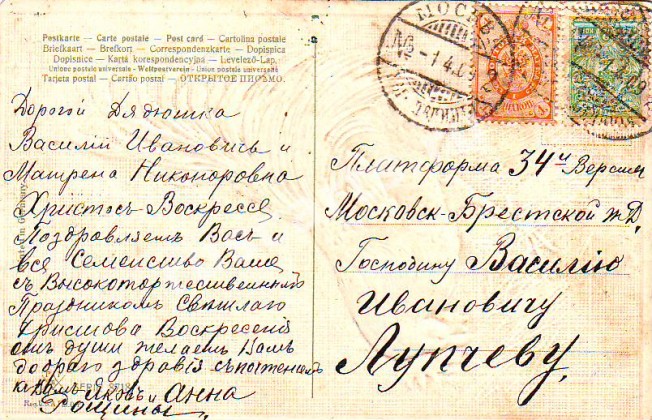 Postkarte — Carte postale — Post card — Cartolina postale
Briefkaart — Brefkort — Correspondenzkarte — Dopisnica
Dopisnice — Karta korespondencyjna — Levelező-Lap.
Unione postale universale — Weltpostverein — Union postale universelle
Tarjeta postal — Cartão postal — ОТКРЫТОЕ ПИСЬМО.
МОСКВА
1 4 09
Дорогой Дядюшка
Василій Ивановичь и
Матрена Никоноровна
Христосъ Воскресе
Поздравляемъ Васъ и
все Семейство Ваше
съ Высокоторжественнымъ
Праздникомъ Святлаго
Христова Воскресенія
отъ души желаемъ Вамъ
добраго здравія съ почтеніемъ
къ Вамъ Яковъ и Анна
Рощины
Платформа 34й Версты
Московск-Брестской ж.д.
Господину Василію
Ивановичу
Лупчеву